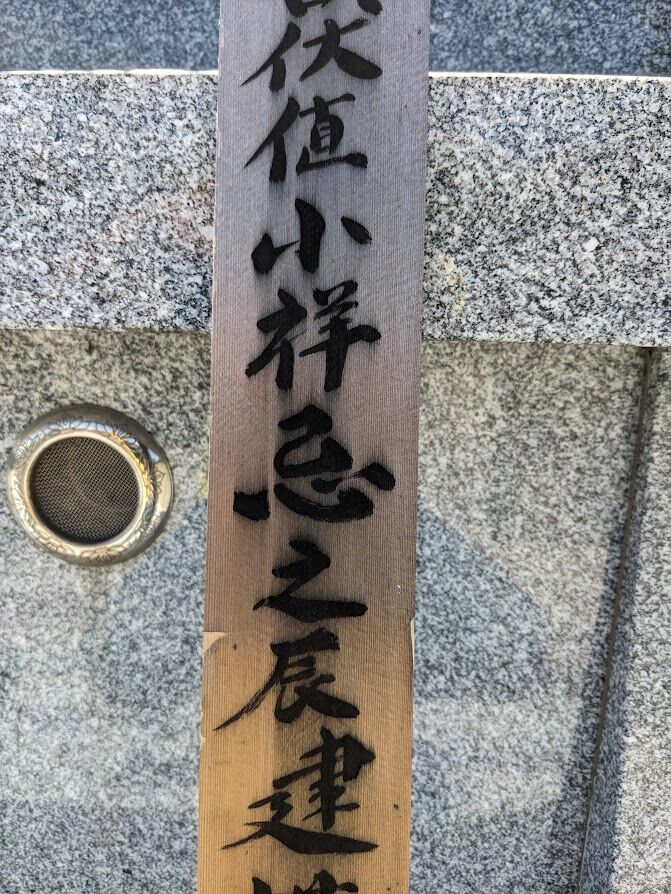 伏値小祥忌之辰建